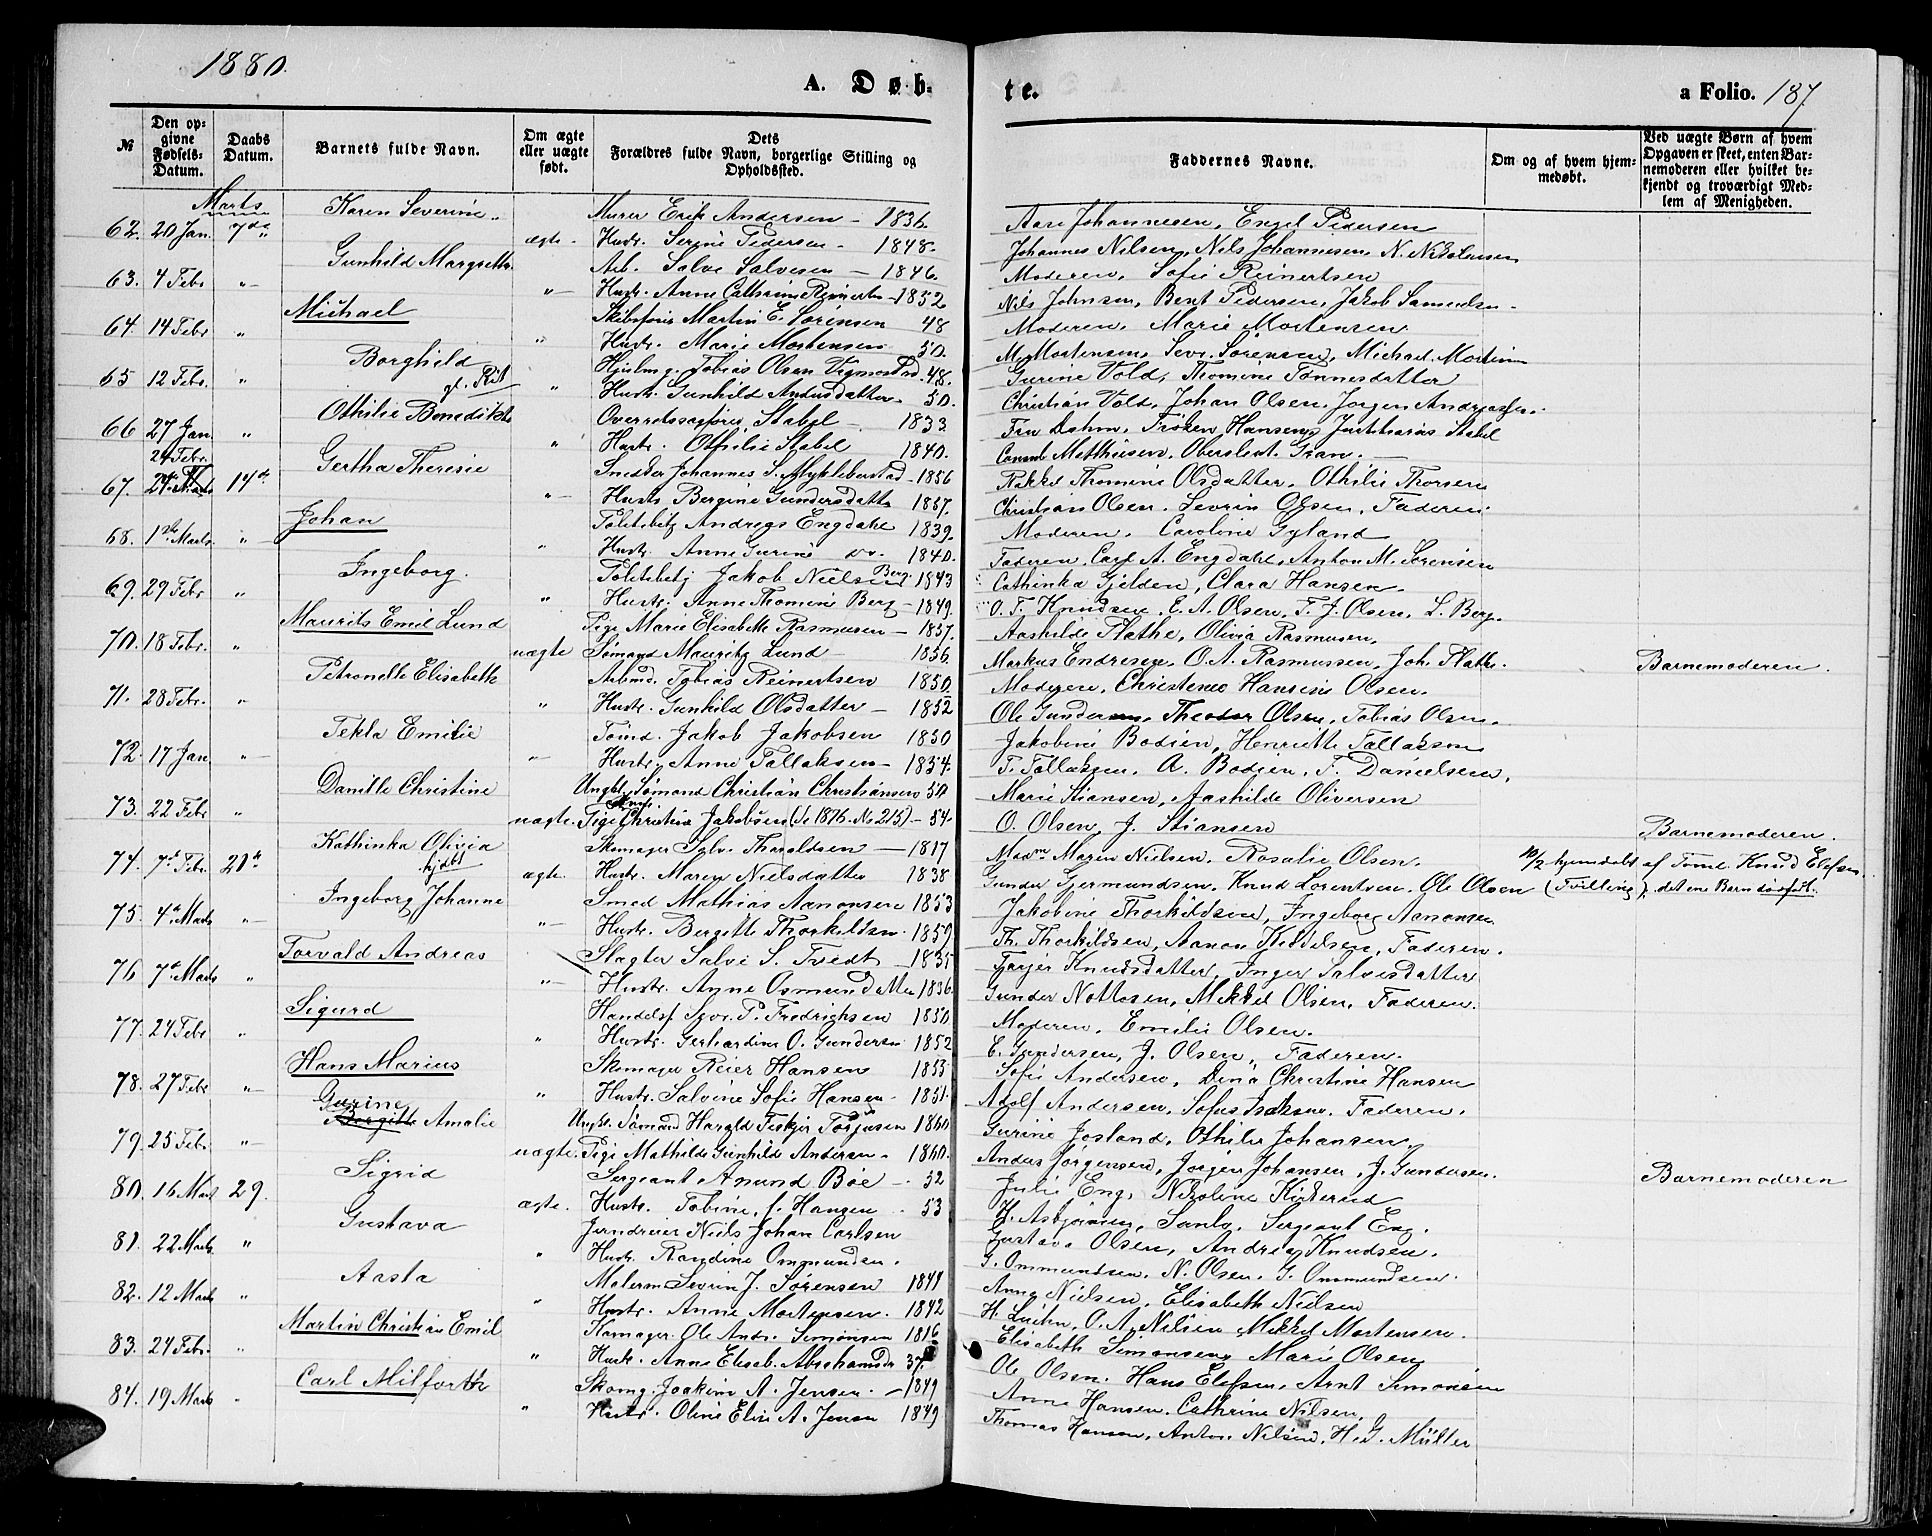 1880.
A. Døb-
te.
a Folio. 187
№
Den op-
givne
Fødsels-
Datum.
Daabs
Datum.
Barnets fulde Navn.
Om ægte
eller uægte
født.
Dets
Forældres fulde Navn, borgerlige Stilling og
Opholdssted.
Faddernes Navne.
Om og af hvem hjem-
medøbt.
Ved uægte Børn af hvem
Opgaven er skeet, enten Bar-
nemoderen eller hvilket be-
kjendt og troværdigt Med-
lem af Menigheden.
Marts
62. 20 Jan. 7de Karen Severine ægte Murer Erik Andersen – 1836. Aase Johannesen, Engel Pedersen
Hustr. Serine Pedersen – 1848. Johannes Nilsen, Nils Johannesen, N. Nikolaisen
63. 4 Febr. „ Gunhild Margrethe „ Arb. Salve Salvesen – 1846. Moderen, Sofie Reinertsen
Hustr. Anne Cathrine Reinerts – 1852 Nils Johnsen, Bent Pedersen, Jakob Samuelsen
64. 14 Febr „ Michael „ Skibsfører Martin E. Sørensen 48 Moderen, Marie Mortensen.
Hustr. Marie Mortensen 50. M. Mortensen, Sevr. Sørensen, Michael Morten
65 12 Febr. „ Borghild „ Hjulmg. Tobias Olsen 48. Gurine Vold, Thomine Tønnesdatter
Hustr. Gunhild Andersdatter 50. Christian Vold, Johan Olsen, Jørgen Andreas
66 27 Jan. „ Othilie Benedikte „ Overretssagfører Stabel – 1833 Fru Dahm, Frøken Hansen, Justitiarius Stabel
Hustr. Othilie Stabel 1840. Consul Matthiesen, Oberslt. Gran.
67. 24 Febr. 14de Gertha Theresie „ Snedker Johannes S. Mykleberstad – 1856 Rakkel Thomine Olsdatter, Othilie Thorsen
Hustr. Bergine Gundersdatter 1857. Christian Olsen, Severin Olsen, Faderen.
68. 1ste Marts „ Johan „ Politibetj. Andreas Engdahl 1839. Moderen, Caroline Gyland
Hustr. Anne Gurine do. 1840. Faderen, Carl A. Engdahl, Anton M. Sørensen
69. 29 Febr. „ Ingeborg. „ Politibetj. Jakob Nielsen Berg 1843 Cathinka Gjelden, Clara Hansen.
Hustr. Anne Thomine Berg – 1849. O. T. Knudsen, E. A. Olsen, F. J. Olsen, L. Berg.
70. 18 Febr. „ Maurits Emil Lund uægte Pige Marie Elisabeth Rasmusen – 1857. Aashilde Flathe, Olivia Rasmusen,
Sømand Mauritz Lund – 1856. Markus Endresen, O. A. Rasmussen, Joh. Flathe. Barnemoderen.
71. 28 Febr. „ Petronelle Elisabeth „ Arbmd. Tobias Reinertsen 1850. Moderen, Christense Hansine Olsen.
Hustr. Gunhild Olsdatter – 1852 Ole Gundersen, Theodor Olsen, Tobias Olsen.
72. 17 Jan „ Tekla Emilie „ Tømd. Jakob Jakobsen 1850 Jakobine Bodien, Henriette Tallaksen
Hustr. Anne Tallaksen – 1854. T. Tallaksen, A. Bodien, F. Danielsen,
73. 22 Febr. „ Danille Christine uægte. Ungk. Sømand Christian Christiansen 50 Marie Stiansen, Aashilde Oliversen
Pige Christine Jakobsen (se 1876. No 215) – 54. O. Olsen, J. Stiansen Barnemoderen.
74. 7de Febr. 21de Kathinka Olivia hjdbt ægte. Skomager Sylv. Tharaldsen – 1817 Madm Maren Nielsen, Rosalie Olsen. 10/2 hjemdøbt af Tømd. Knud Elefsen.
Hustr. Maren Nielsdatter 1838 Gunder Gjermundsen, Knud Lorentsen, Ole Olsen (Tvilling), det ene Barn dødfødt.
75. 4de Marts „ Ingeborg Johanne „ Smed Mathias Aanonsen 1853 Jakobine Thorkildsen, Ingeborg Aanonsen
Hustr. Bergitte Thorkildsen. 1859. Th. Thorkildsen, Aanon Kittilsen, Faderen.
76. 7de Marts „ Torvald Andreas „ Slagter Salve S. Tvedt – 1835 Tarjer Knudsdatter, Inger Salvesdatter
Hustr. Anne Osmundsdatter 1836. Gunder Nottosen, Mikkel Olsen, Faderen.
77. 24 Febr „ Sigurd „ Handelsf. Syvr. P. Fredriksen 1850 Moderen, Emilie Olsen.
Hustr. Gerhardine O. Gundersen 1852 E. Gundersen, J. Olsen, Faderen.
78. 27 Febr „ Hans Marius „ Skomager Reier Hansen 1853 Sofie Andersen, Dina Christine Hansen
Hustr. Salvine Sofie Hansen. 1851. Adolf Andersen, Sofus Isaksen, Faderen.
79. 25 Febr. „ Gurine Amalie uægte. Ungk. Sømand Harald Feskjer Torjusen 1860 Gurine Josland, Othilie Johansen,
Pige Mathilde Gunhilde Andersen. 1860. Anders Jørgensen, Jørgen Johansen, J. Gundersen. Barnemoderen
80. 16 Marts 29. Sigrid ægte. Sergeant Anund Bøe – 52 Julie Eng, Nikoline Kirkerud
Hustr. Tobine, f. Hansen 53 H. Asbjørnsen, Santv. Sergeant Eng.
81. 22 Marts „ Gustava „ Jerndreier Niels Johan Carlsen Gustava Olsen, Andrea Knudsen.
Hustr. Randine Ommundsen. G. Ommundsen, N. Olsen, G. Ommundsen.
82. 12 Marts „ Aasta „ Malerm Severin J. Sørensen 1841 Anna Nielsen, Elisabeth Nielsen
Hustr. Anne Mortensen. 1842 H. O. A. Nilsen Mikkel Mortensen.
83. 24 Febr. „ Martin Christian Emil „ Kamager Ole Andr. Simonsen 1816 Elisabeth Simonsen, Marie Olsen
Hustr. Anne Elisab. Abrahamsdr 37. Ole Olsen, Hans Elefsen, Arnt Simonsen
84. 19 Marts „ Carl Milforth „ Skomg. Joakim A. Jensen. – 1849 Anne Hansen, Cathrine Nilsen,
Hustr. Oline Elise A. Jensen 1849 Thomas Hansen, Anton Nilsen, H. G. Müller